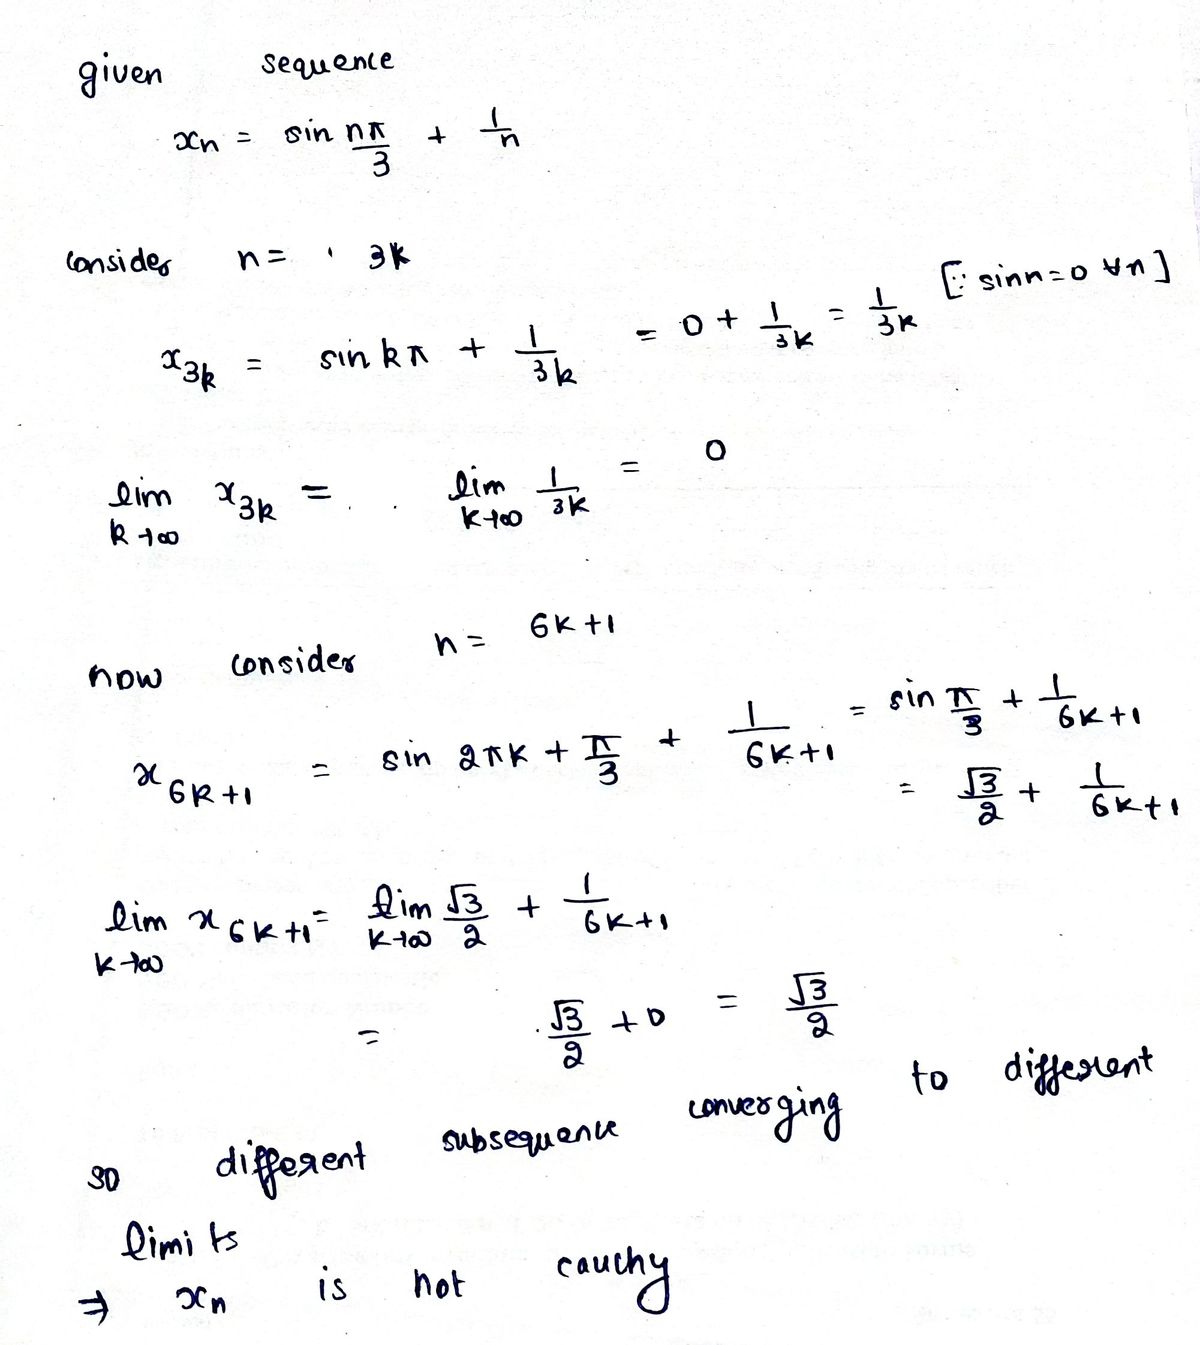 given sequence
xn = sin nπ/3 + 1/n
consider n = 3k
x3k = sin kπ + 1/3k = 0 + 1/3k = 1/3k [∵ sinn=0 ∀n]
lim k→∞ x3k = lim k→∞ 1/3k = 0
now consider n = 6k+1
x6k+1 = sin 2πk + π/3 + 1/6k+1 = sin π/3 + 1/6k+1
= √3/2 + 1/6k+1
lim k→∞ x6k+1 = lim k→∞ √3/2 + 1/6k+1
= √3/2 + 0 = √3/2
so different subsequence converging to different
limits
⇒ xn is not cauchy